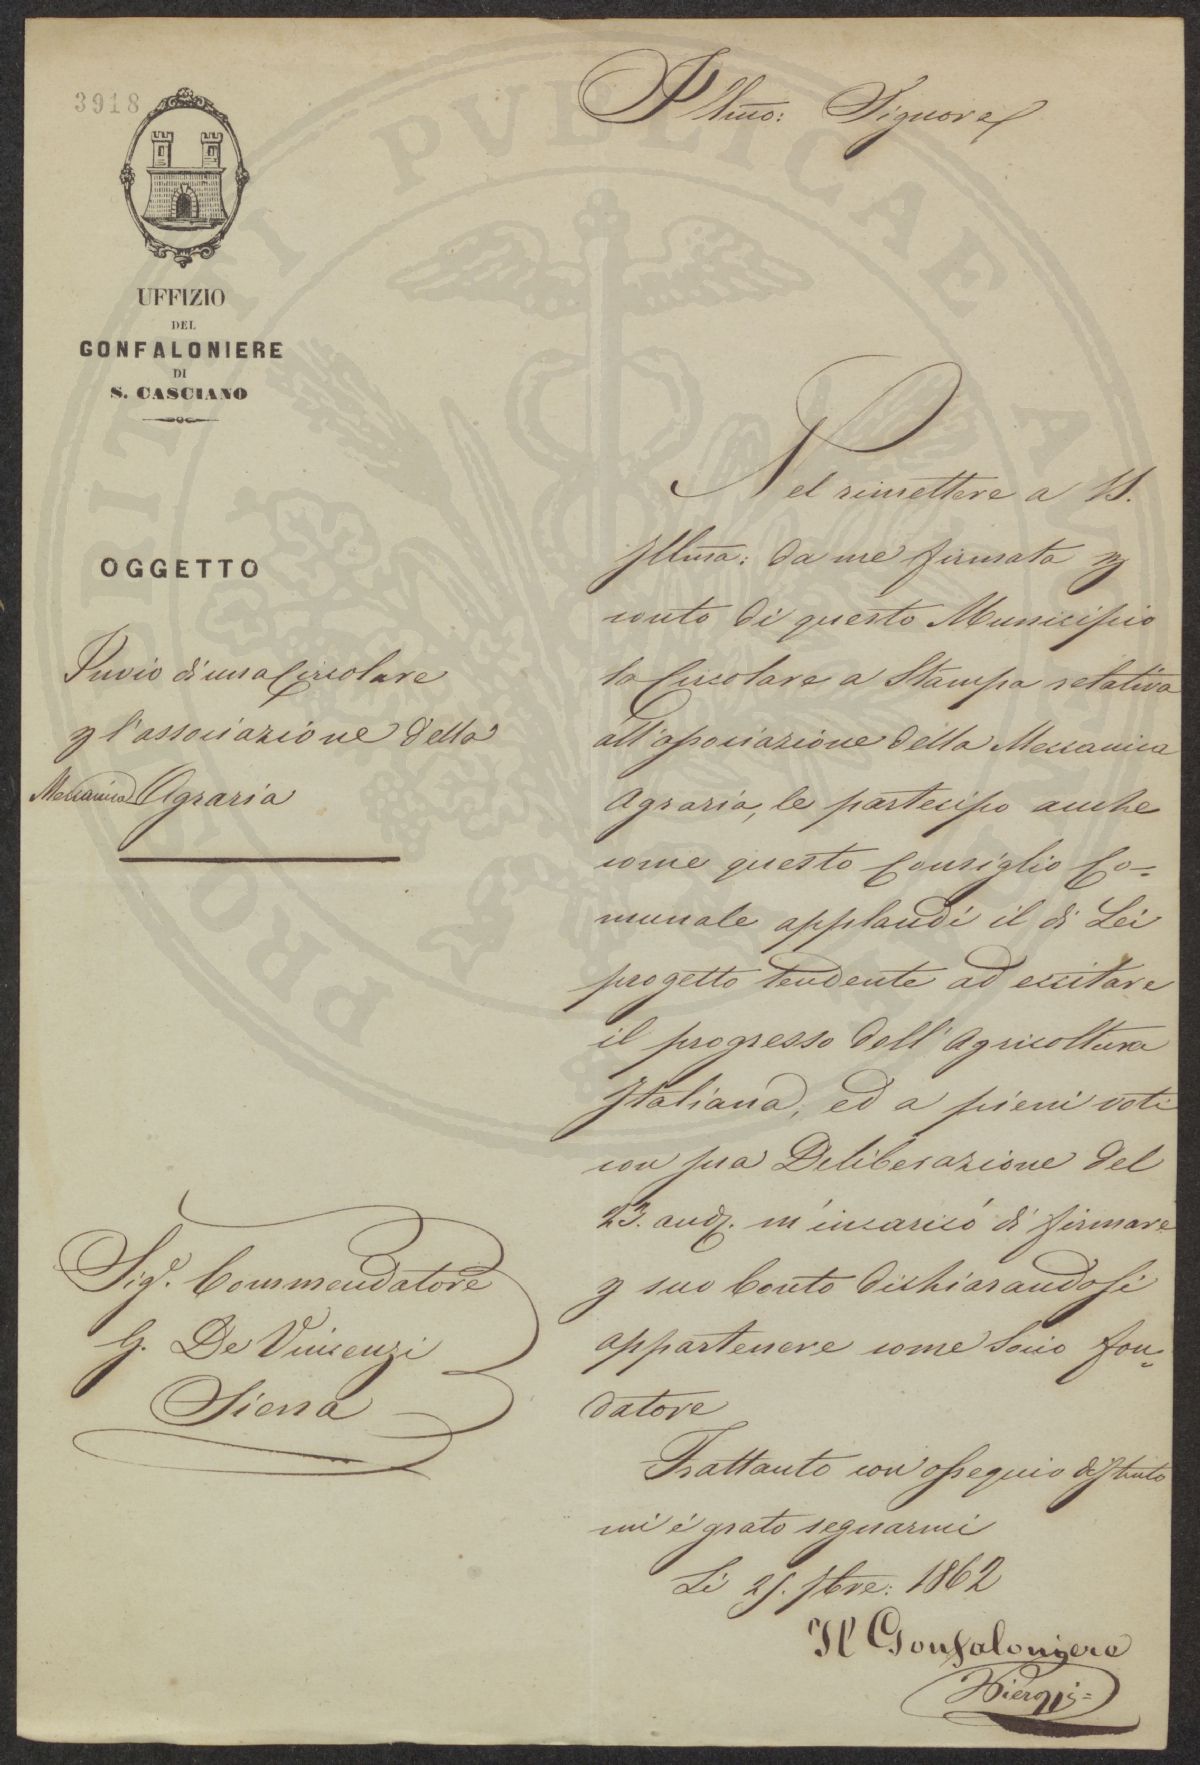 3918
UFFIZIO
DEL
GONFALONIERE
DI
S. CASCIANO
OGGETTO
Invio di una Circolare
p l'associazione della
Meccanica Agraria
Sigr. Commendatore
G. De Vincenzi
Siena
Illmo: Signore
Nel rimettere a V.S.
Illma: da me firmata p
conto di questo Municipio
la Circolare a Stampa relativa
all'associazione della Meccanica
Agraria, le partecipo anche
come questo Consiglio Co=
munale applaudì il di Lei
progetto tendente ad eccitare
il progresso dell'Agricoltura
Italiana, ed a pieni voti
con sua Deliberazione del
23. andt. m'incaricó di firmare
p suo Conto dichiarandosi
appartenere come Socio fon=
datore
Frattanto con ossequio distinto
mi è grato segnarmi
Li 25. 1862
Il Gonfaloniere
PROSPERITATI PVBLICAE AVGENDAE